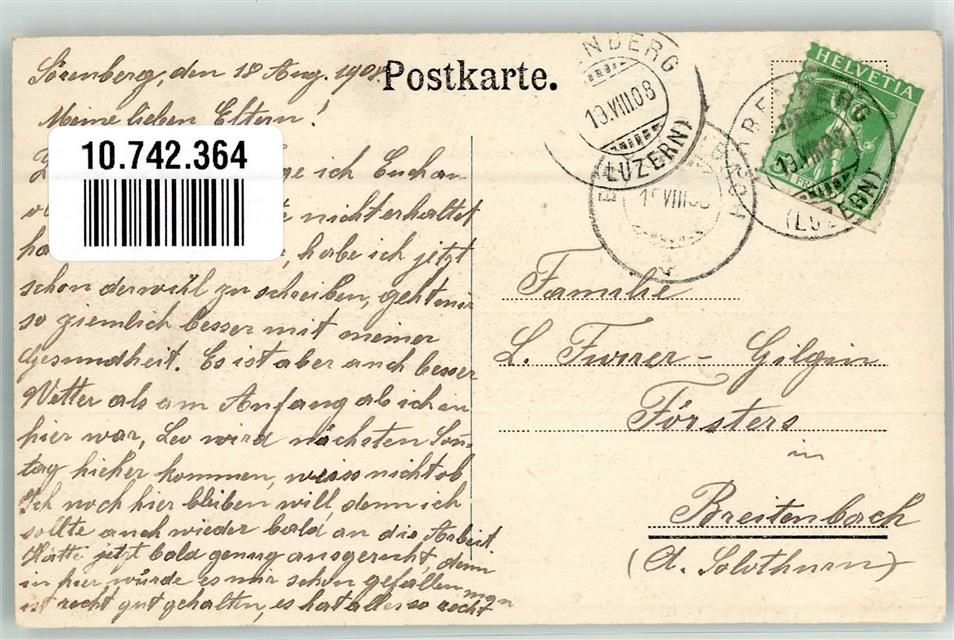 Sörenberg, den 18 Aug. 1908.
Postkarte.
Meine lieben Eltern!
10.742.364
ich Euch an
nicht erhaltet
habe ich jetzt
schon derwihl zu schreiben, geht mir
so ziemlich besser mit meiner
Gesundheit. Es ist aber auch besser
Wetter als am Anfang als ich in
hier war, Leo wird nächsten Son-
tag hieher kommen, weiss nicht ob
Ich noch hier bleiben will denn ich
sollte auch wieder bald an die Arbeit
Hätte jetzt bald genug ausgeruht, denn
in hier würde es mir schon gefallen man
ist recht gut gehalten, es hat alles so recht
NBERG
19.VIII.08
(LUZERN)
VIII
HELVETIA
BERG
19.VIII.08
(LUZERN)
Familie
L. Furrer - Gilgin
Försters
in
Breitenbach
(Ct. Solothurn)